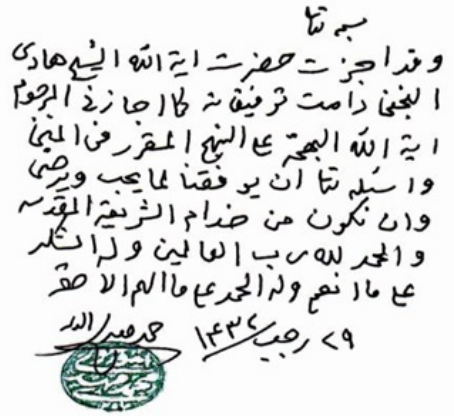 بسمه تعالى
وقد اجزت حضرت اية الله الشيخ هادي
النجفي دامت توفيقاته كما اجازني المرحوم
اية الله البهجة على النهج المقرر في المبنى
واسئله تعالى ان يوفقنا لما يحب ويرضى
وان نكون من خدام الشريعة المقدسه
والحمد لله رب العالمين وله الشكر
على ما انعم وله الحمد على ما الهم الاحقر
٢٩ رجب ١٤٣٢